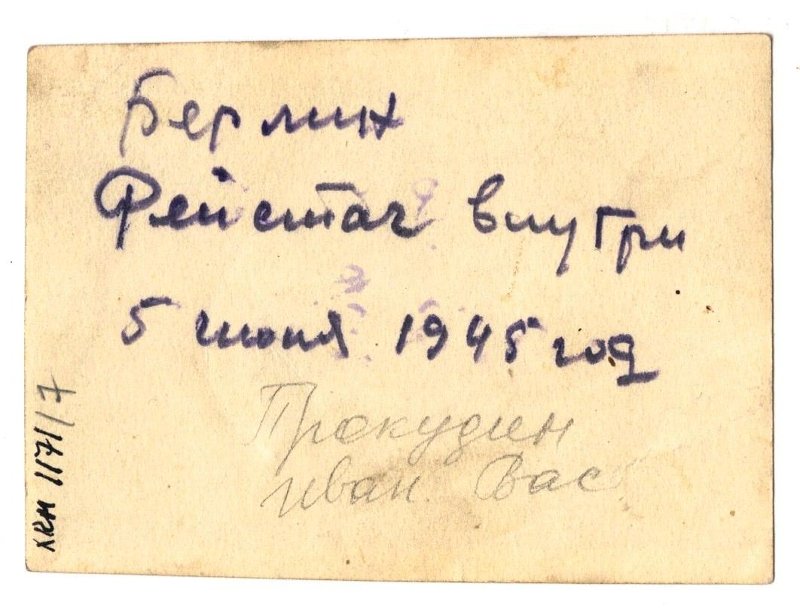 Берлин
Рейстаг внутри
5 июня 1945 год
Прокудин
Иван. Вас
ККМ 1171/7